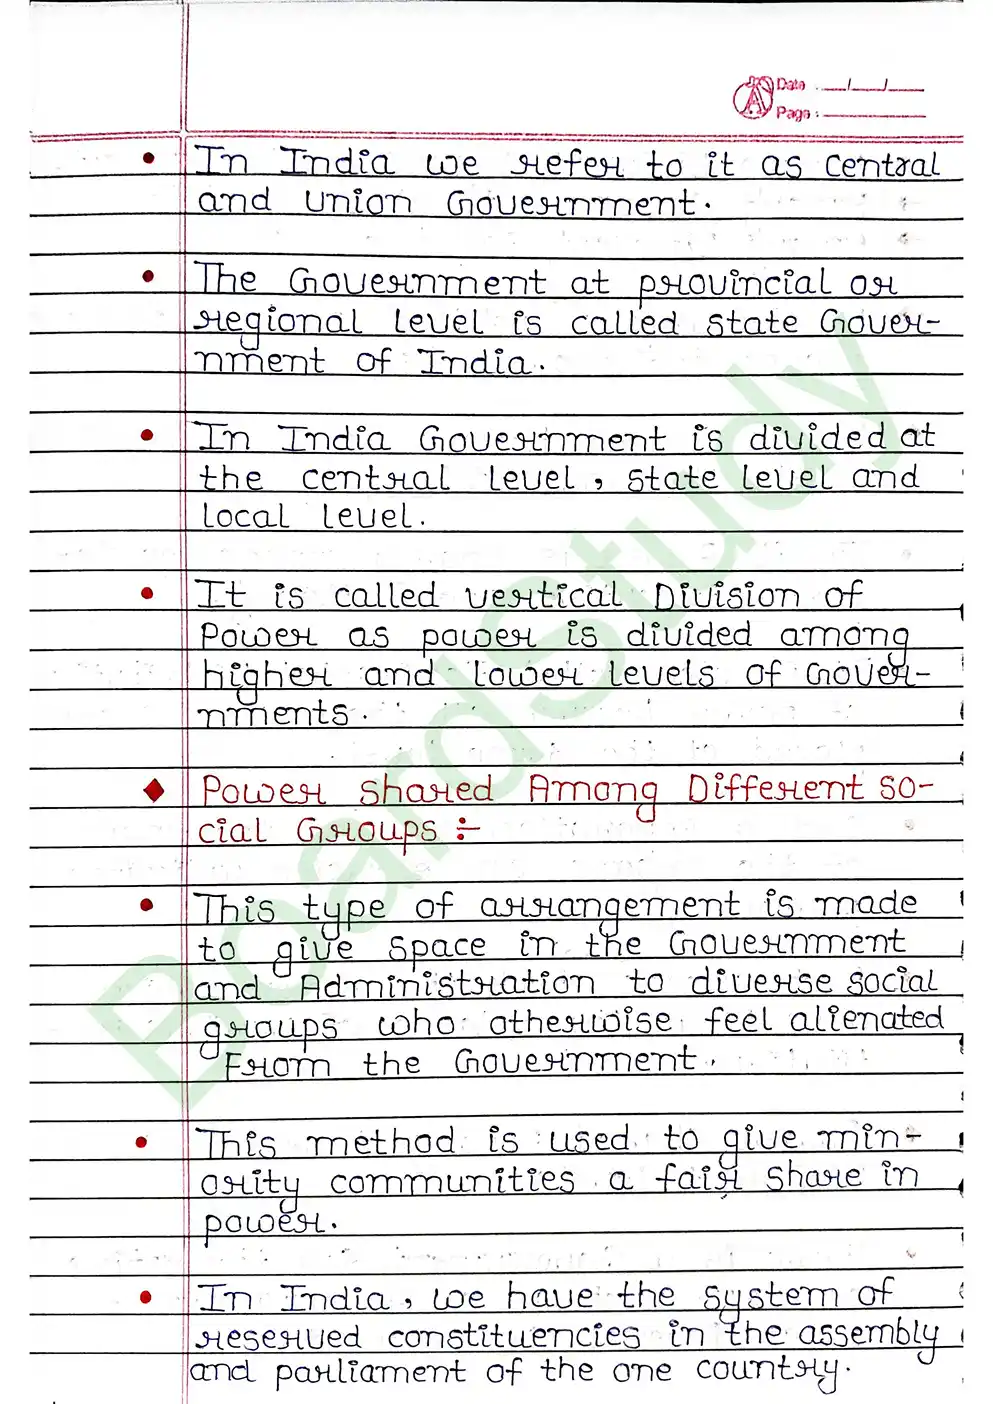 Date : __/__/__
Page :
• In India we refer to it as central
and Union Government.
• The Government at provincial or
regional level is called State Gover-
nment of India.
• In India Government is divided at
the central level, State Level and
Local level.
• It is called vertical Division of
Power as power is divided among
higher and lower levels of Gover-
nments.
◆ Power Shared Among Different So-
cial Groups :-
• This type of arrangement is made
to give Space in the Government
and Administration to diverse social
groups who otherwise feel alienated
From the Government.
• This method is used to give min-
ority communities a fair Share in
power.
• In India, we have the system of
reserved constituencies in the assembly
and parliament of the one country.
BoardStudy